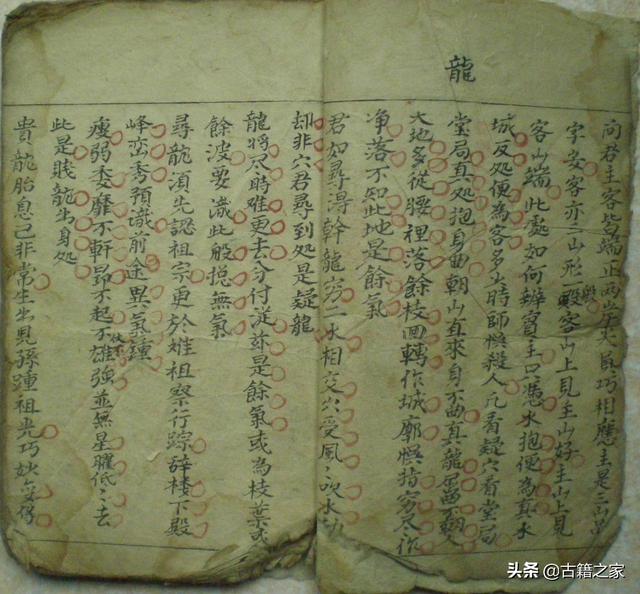 龍
向君主客皆端正两岸大
巧相應主是三山品
字安客亦三山形一般客山上見主山好主山上見
客山端此處如何辦賓主只憑水抱便為真水
城反処便為客多少時師悞殺人凢看疑穴看堂局
堂局真処抱身曲朝山直來身不曲真龍畄
大地多從腰裡落餘枝回轉作城廓悞指穷尽作
净落不知此地是餘氣
君如尋淂幹龍穷二水相交穴受風〻吹水
却非穴君尋到処是疑龍
龍將尽時难更去分付
是餘氣或為枝葉或
餘波要識此般捴無氣
尋龍湏先認祖宗更於
祖察行踪辞楼下殿
峰峦秀預識前途異氣鍾
瘦弱委靡不軒昻不起不雄強並無星曜低〻去
此是賤龍出身処
貴龍胎息已非常生出児孫踵祖光巧妙
头条 @古籍之家